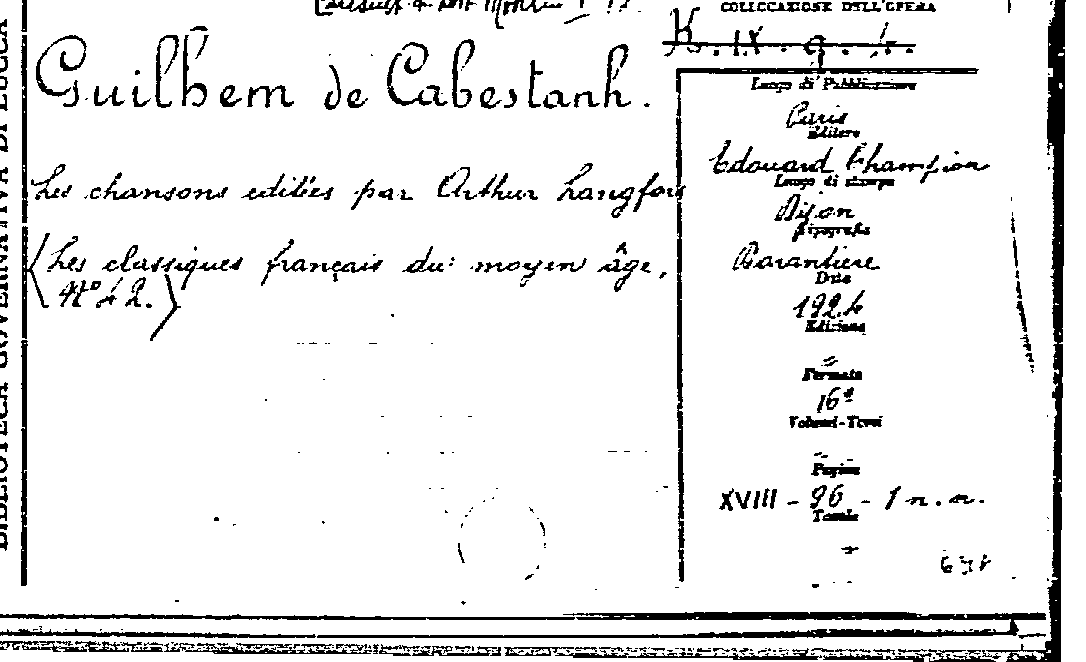 COLLOCAZIONE DELL'OPERA
K. IX. g.
Guilhem de Cabestanh.
Les chansons editées par Arthur Langfors
(Les classiques français du moyen âge,
N° 42.)
Luogo di Pubblicazione
Paris
Editore
Edouard Champion
Luogo di stampa
Dijon
Tipografia
Darantiere
Data
1924
Edizione
Formato
16°
Volumi-Tomi
Pagine
XVIII - 96 - 1 n. n.
Tavole
BIBLIOTECA GOVERNATIVA DI LUCCA